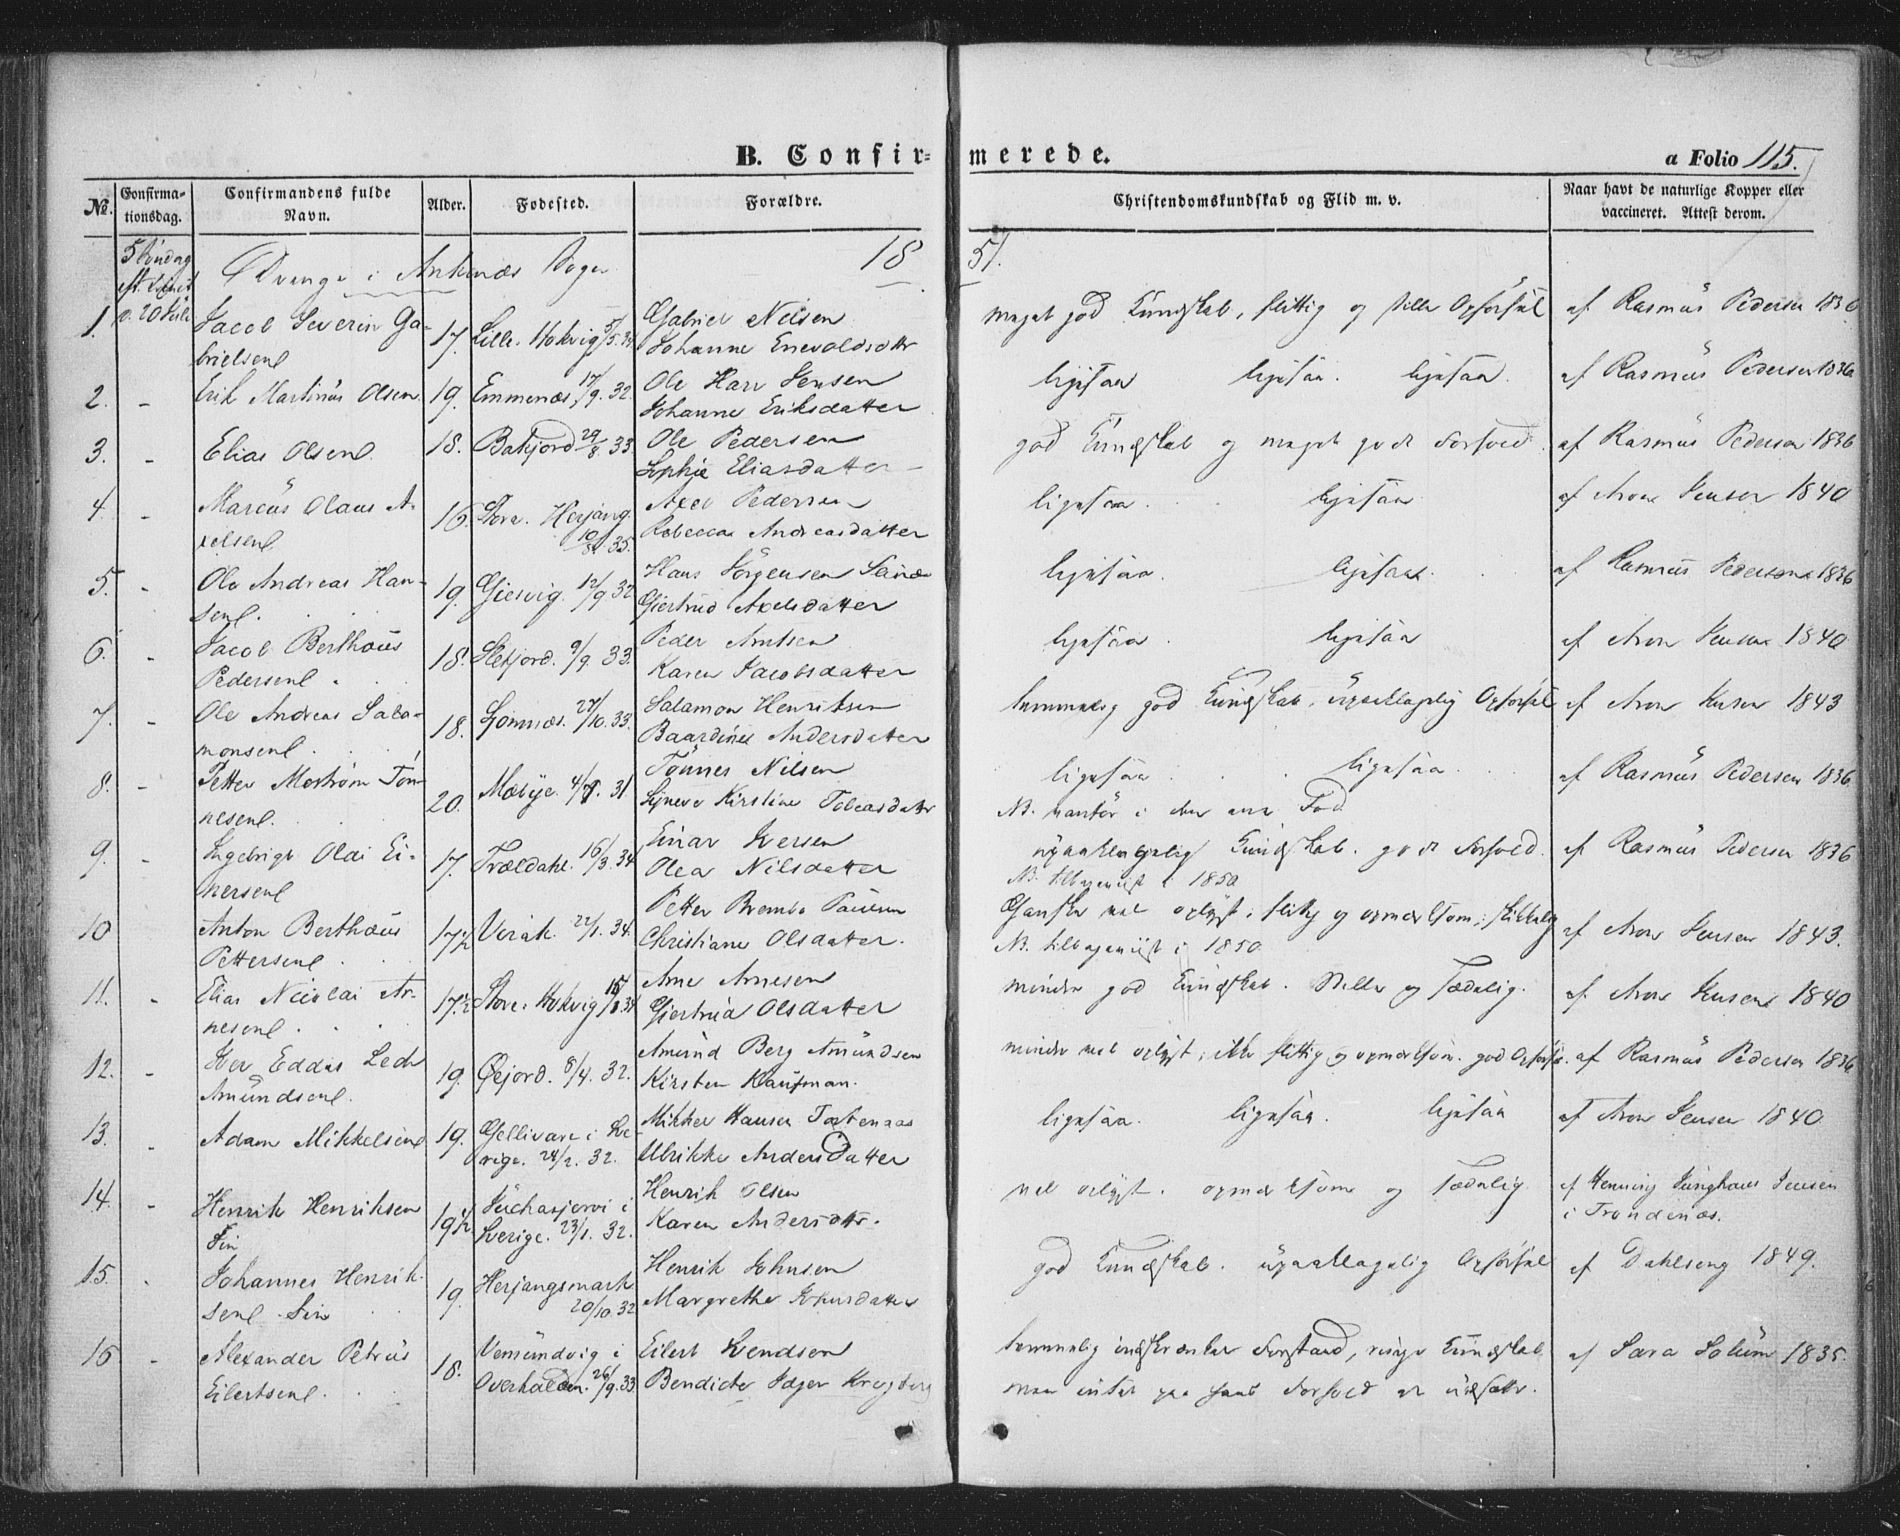 B. Confir- merede.
a Folio 115.
No. Confirma- tionsdag. Confirmandens fulde Navn. Alder. Fødested. Forældre. Christendomskundskab og Flid m. v. Naar havt de naturlige Kopper eller vaccineret. Attest derom.
5 Søndag
v. 20 Juli
Drenge i Ankenæs Sogn
18 51.
1. Jacob Severin Ga- 17. Lille Hokvig Gabriel Nilsen meget god Kundskab, flittig og stille Opførsel af Rasmus Pedersen 1836
brielsen Johanne Enevoldsdttr
2. - Erik Martinus Olsen 19. Emmenæs 17/9. 32. Ole Jensen ligesaa ligesaa. ligesaa. af Rasmus Pedersen 1836
Johanne Eriksdatter
3. - Elias Olsen 18. Bakjord 29/8 33. Ole Pedersen god Kundskab og meget godt Forhold. af Rasmus Pedersen 1836
Sophie Eliasdatter
4. - Marcus Olaus A- 16. Store Herjang Axel Pedersen ligesaa. ligesaa af Aron Jensen 1840
xelsen 10/8. 35. Rebecca Andreasdatter
5. - Ole Andreas Han- 19. Giesvig. 12/9 32 Hans Jørgensen ligesaa. ligesaa. af Rasmus Pedersen 1836
sen. Giertrud Axelsdatter
6. - Jacob Berthæus 18. Sletjord. 9/9 33. Peder Arntsen ligesaa. ligesaa af Aron Jensen 1840
Pedersen Karen Jacobsdatter
7. - Ole Andreas Salo- 18. 27/10. 33. Salamon Henriksen temmelig god Kundskab, upaaklagelig Opførsel af Aron Jensen 1843
monsen Andersdatter
8. - Petter Tøn- 20. Mæbye. 31 Tönnes Nilsen ligesaa ligesaa. af Rasmus Pedersen 1836.
nesen. Kirstine Tobiasdatter NB. i den ene Fod
9. - Ingebrigt Olai Ei- 17. Træeldahl. 16/3. 34 Einar Iversen upaaklagelig Kundskab. godt Forhold. af Rasmus Pedersen 1836
nersen Olea Nilsdatter NB. tilbageviist i 1850
10 Anton Berthæus 17½ Virak. 22/1. 34. Petter Brembo Paulsen Ganske vel oplyst, flittig og opmærksom, skikkelig af Aron Jensen 1843.
Pettersen Christiane Olsdatter. NB. tilbageviist i 1850
11. - Elias Nicolai Ar- 17½ Store Hokvig Arne Arnesen mindre god Kundskab. Stille og sædelig. af Aron Jensen 1840
nesen Giertrud Olsdatter
12. - Iver Eddis Lech 19. Øejord. 8/4. 32. Amund Berg Amundsen mindre vel oplyst, ikke flittig og opmærksom. god Opførsel. af Rasmus Pedersen 1836
Amundsen. Kirsten Kaufman.
13. - Adam Mikkelsen 19. Gellivare i Sve- Mikkel Hansen ligesaa. ligesaa. ligesaa af Aron Jensen 1840
rige. 24/2. 32. Ulrikke Andersdatter
14. - Henrik Henriksen 19½ Juckasjervi i Henrik Olsen vel oplyst. opmærksom og sædelig af Henning Junghans Jensen
Fin Sverige. 23/1. 32. Karen Andersdttr. i Trondenæs.
15. - Johannes Henrik- 19. Herjangsmark Henrik Johnsen god Kundskab. upaaklagelig Opførsel af Dahlseng 1849.
sen Fin 20/10. 32 Margrethe Johnsdatter
16 - Alexander Petrus 18. Vemundvig i Eilert Svendsen temmelig indskrænket Forstand, ringe Kundskab af Sara Solum 1835.
Eilertsen Overhalden. 26/9. 33 Bendicte men intet paa hans Forhold at udsætte.